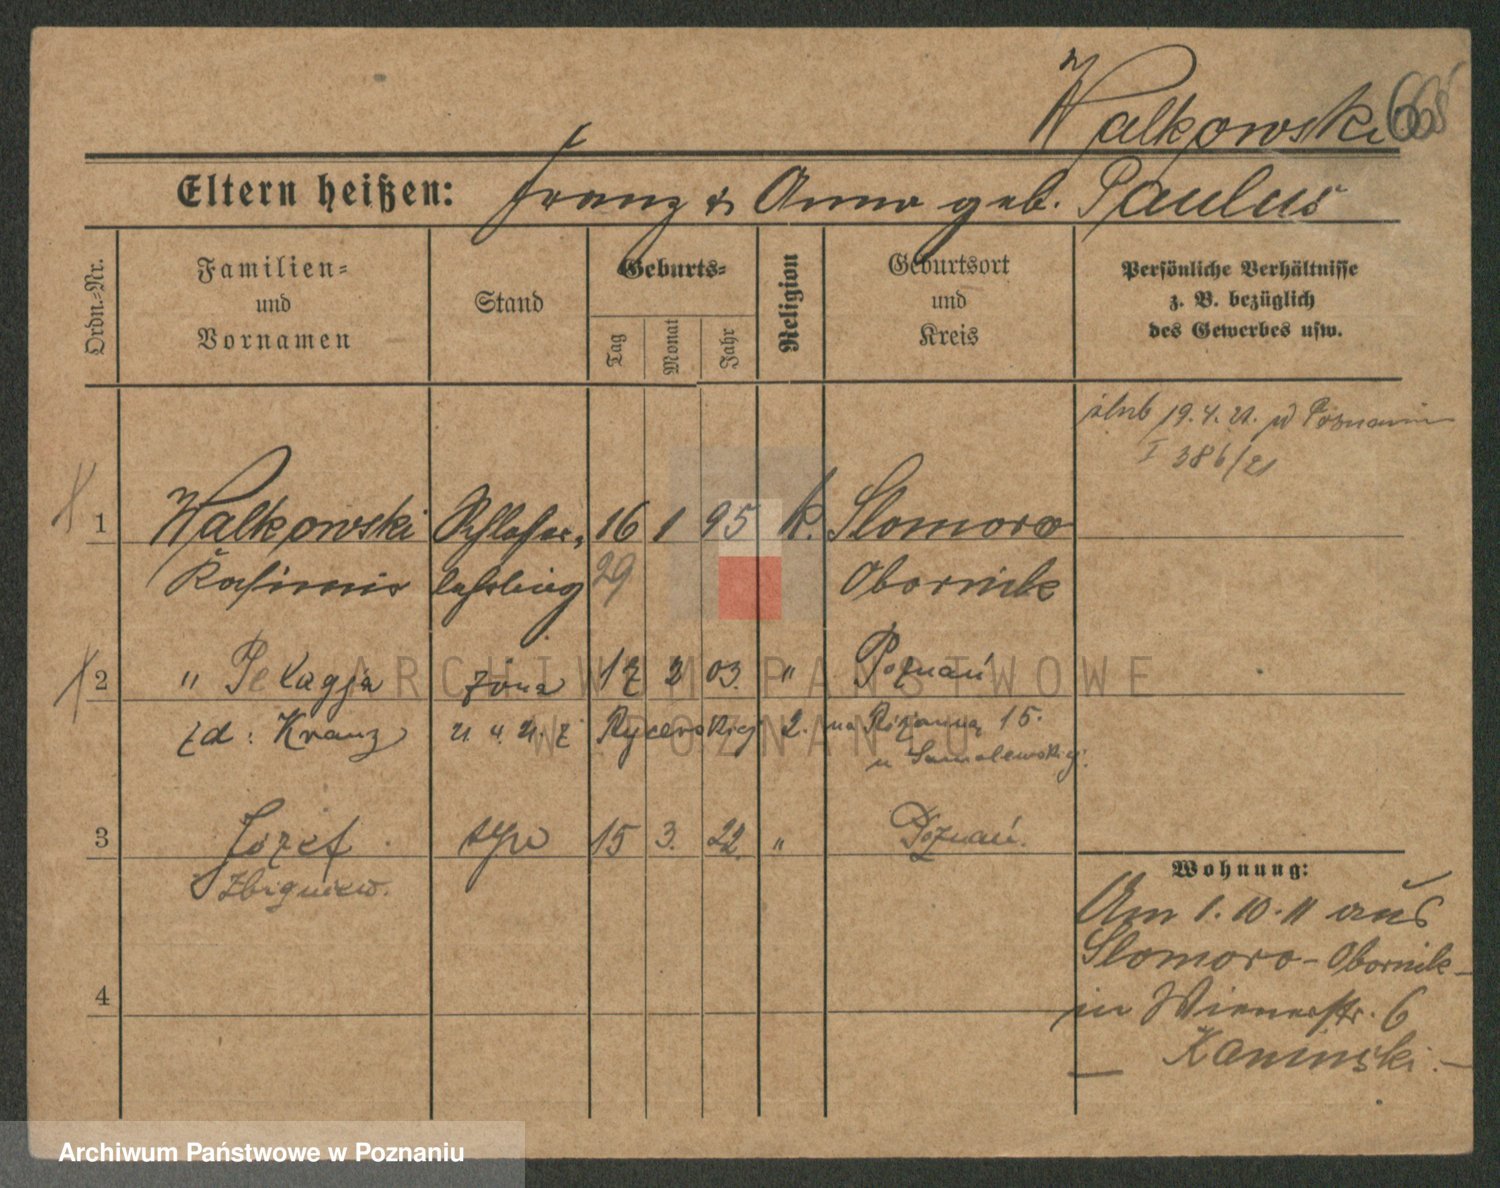 Walkowski
Eltern heißen: Franz & Anna geb. Paulus
Ordn.-Nr.
Familien-
und
Vornamen
Stand
Geburts-
Tag
Monat
Jahr
Religion
Geburtsort
und
Kreis
Persönliche Verhältnisse
z. B. bezüglich
des Gewerbes usw.
ślub 19.4.21. w Poznaniu
I 386/21
1 Walkowski Schlosser- 16 1 95 k. Slomowo
Kasimir lehrling 29 Obornik
2 " Pelagja żona 17 2 03. " Poznań
zd: Kranz Rycerskiej 2. na Różanną 15.
u
3 Józef syn 15 3. 22. " Poznań.
Zbigniew.
4
Wohnung:
Am 1.10.11 aus
Slomowo - Obornik -
in Wienerstr. 6
Kaminski. -
ARCHIWUM PAŃSTWOWE
W POZNANIU
Archiwum Państwowe w Poznaniu